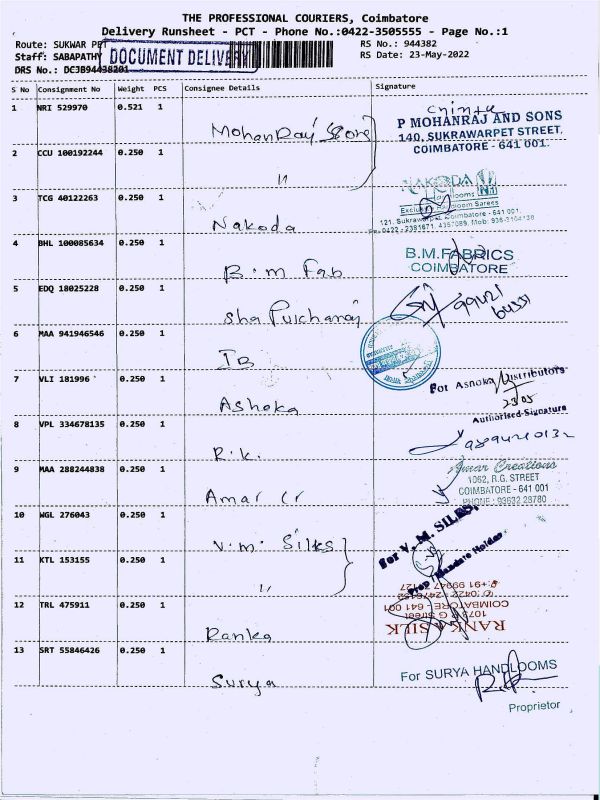 THE PROFESSIONAL COURIERS, Coimbatore
Delivery Runsheet - PCT - Phone No.:0422-3505555 - Page No.:1
Route: SUKWAR PET RS No.: 944382
Staff: SABAPATHY DOCUMENT DELIVERY RS Date: 23-May-2022
DRS No.: DCJB94438201
S No Consignment No Weight PCS Consignee Details Signature
1 NRI 529970 0.521 1 Mohan Raj Sons
P MOHANRAJ AND SONS
140, SUKRAWARPET STREET,
COIMBATORE - 641 001.
2 CCU 100192244 0.250 1 "
3 TCG 40122263 0.250 1 Nakoda
NAKODA
121, Sukrawarpet, Coimbatore - 641 001.
4 BHL 100085634 0.250 1 B.m Fab
B.M.FABRICS
COIMBATORE
5 EDQ 18025228 0.250 1 Sha Pulchanaj
6 MAA 941946546 0.250 1 IB
7 VLI 181996 0.250 1 Ashoka
For Ashoka Distributors
23/05
Authorised Signature
8 VPL 334678135 0.250 1 R.k.
9 MAA 288244838 0.250 1 Amar Cr
Amar Creations
1062, R.G. STREET
COIMBATORE - 641 001
PHONE : 93632 28780
10 WGL 276043 0.250 1 V.m. Silks
For V. M. SILKS,
11 KTL 153155 0.250 1 "
12 TRL 475911 0.250 1 Ranka
RANKA SILK
COIMBATORE - 641 001
13 SRT 55846426 0.250 1 Surya
For SURYA HANDLOOMS
Proprietor